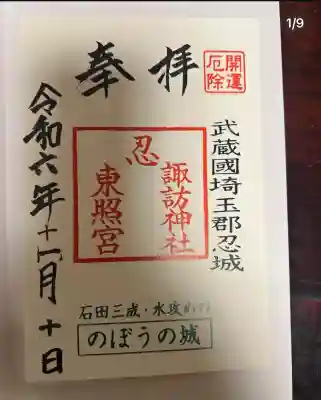 1/9
開運
厄除
奉拝
武蔵國埼玉郡忍城
忍
諏訪神社
東照宮
令和六年十一月十日
石田三成・水攻
のぼうの城